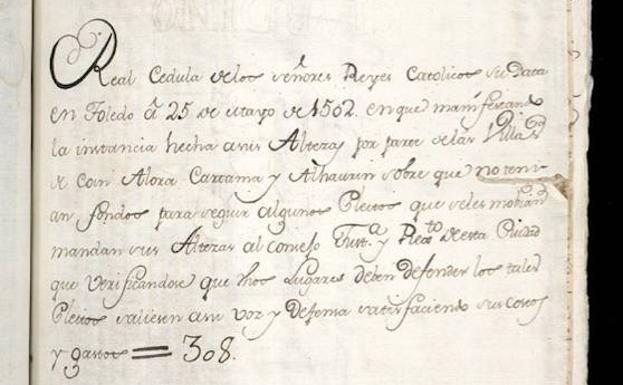 Real Cedula delos señores Reyes Catolicos su Data
en Toledo á 25 de Mayo de 1502. en que manifestando
la instancia hecha asus Altezas por parte delas Villas
de Coin Alora Cartama y Alhaurin sobre que no teni-
an fondos para seguir algunos Pleitos que seles movian
mandan sus Altezas al consejo Just.ª y Rex.to de esta Ciudad
que verificandose que dhos Lugares deben defender los tales
Pleitos saliesen asu voz y Defensa satisfaciendo sus costos
y gastos = 308.